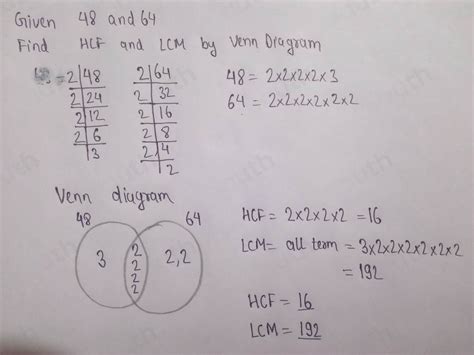 Given 48 and 64
Find HCF and LCM by Venn Diagram
2|48
2|24
2|12
2|6
3
2|64
2|32
2|16
2|8
2|4
2
48 = 2×2×2×2×3
64 = 2×2×2×2×2×2
Venn diagram
48 64
3
2
2
2
2
2,2
HCF = 2×2×2×2 = 16
LCM = all term = 3×2×2×2×2×2×2
= 192
HCF = 16
LCM = 192